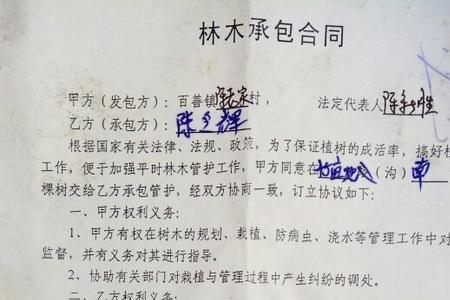 林木承包合同
甲方（发包方）：百善镇陈老家村， 法定代表人陈
乙方（承包方）：陈 辉
根据国家有关法律、法规、政策，为了保证植树的成活率，搞好林
工作，便于加强平时林木管护工作，甲方同意在 （沟）南
棵树交给乙方承包管护，经双方协商一致，订立协议如下：
一、甲方权利义务：
1、甲方有权在树木的规划、栽植、防病虫、浇水等管理工作中对
监督，并有义务对其进行指导。
2、协助有关部门对栽植与管理过程中产生纠纷的调处。
二、乙方权利义务：